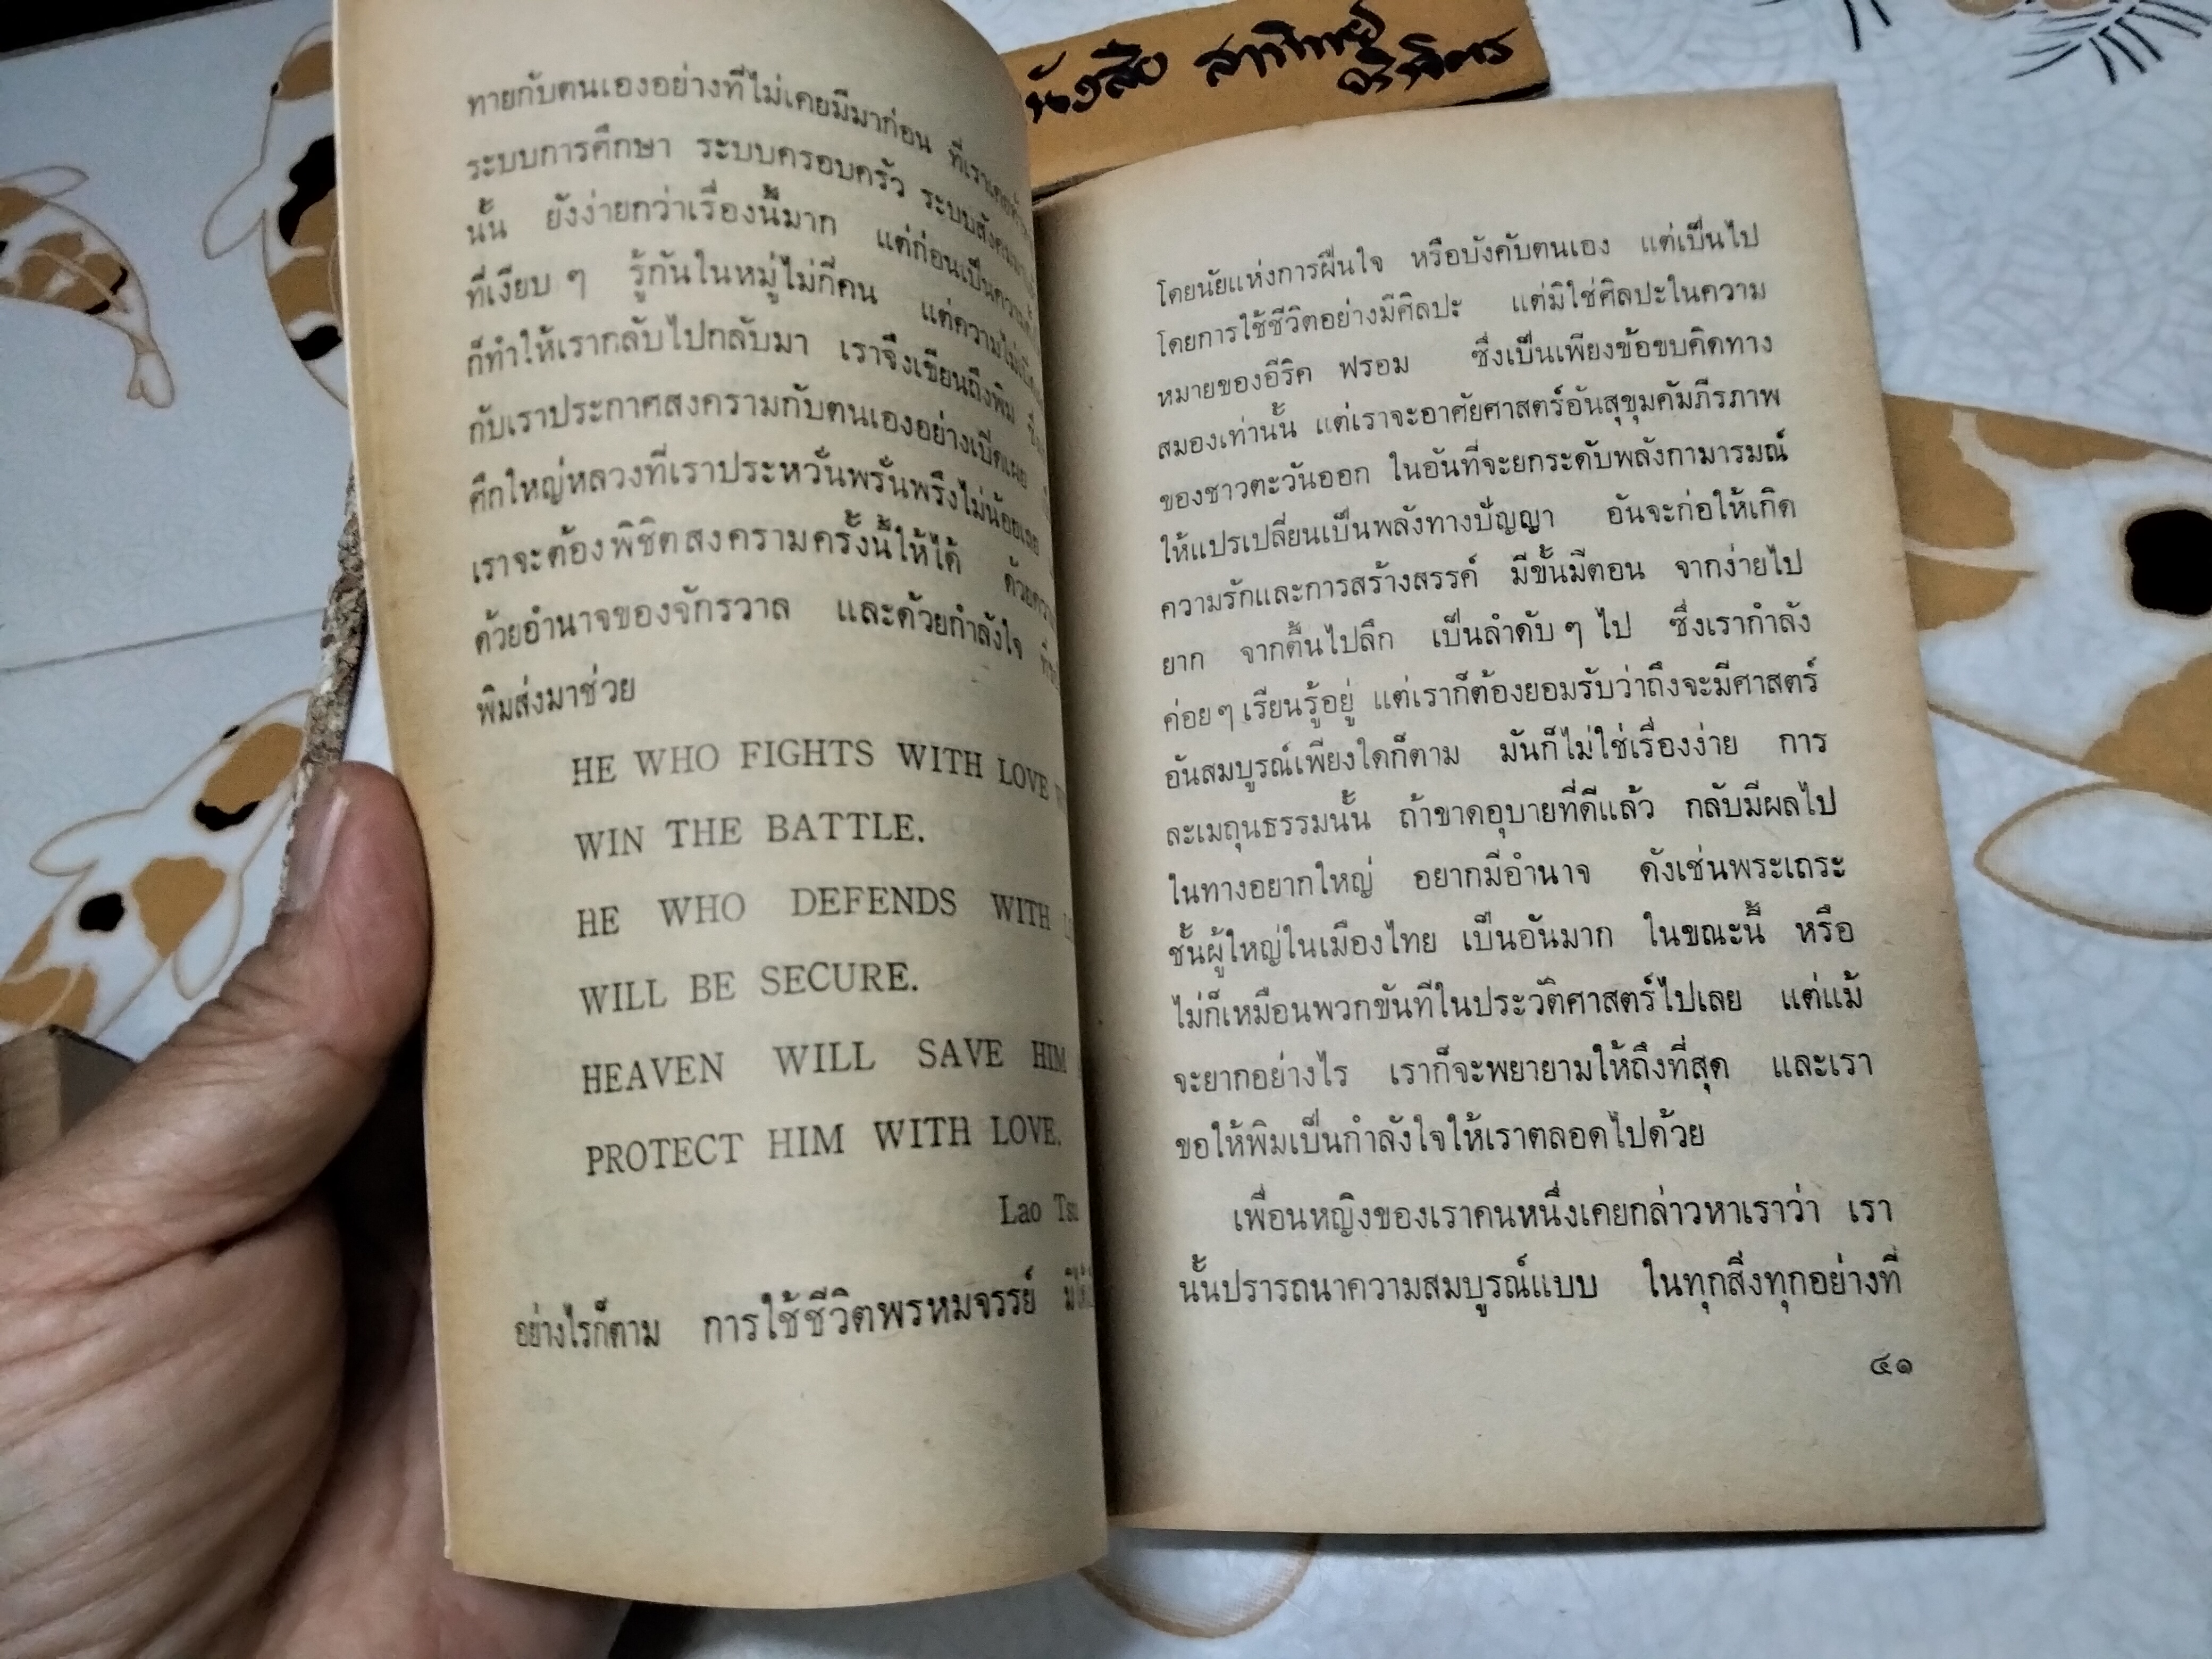 หนังสือ สาทิพย์
ทายกับตนเองอย่างที่ไม่เคยมีมาก่อน ที่เราเคย
ระบบการศึกษา ระบบครอบครัว ระบบสังคม
นั้น ยังง่ายกว่าเรื่องนี้มาก แต่ก่อนเป็น
ที่เงียบ ๆ รู้กันในหมู่ไม่กี่คน แต่ความไม่
ก็ทำให้เรากลับไปกลับมา เราจึงเขียนถึงพิม
กับเราประกาศสงครามกับตนเองอย่างเปิดเผย
ศึกใหญ่หลวงที่เราประหวั่นพรั่นพรึงไม่น้อยเลย
เราจะต้องพิชิตสงครามครั้งนี้ให้ได้
ด้วยอำนาจของจักรวาล และด้วยกำลังใจ
พิมส่งมาช่วย
HE WHO FIGHTS WITH LOVE
WIN THE BATTLE.
HE WHO DEFENDS WITH
WILL BE SECURE.
HEAVEN WILL SAVE HIM
PROTECT HIM WITH LOVE.
Lao Tsu
อย่างไรก็ตาม การใช้ชีวิตพรหมจรรย์
โดยนัยแห่งการฝืนใจ หรือบังคับตนเอง แต่เป็นไป
โดยการใช้ชีวิตอย่างมีศิลปะ แต่มิใช่ศิลปะในความ
หมายของอีริค ฟรอม ซึ่งเป็นเพียงข้อขบคิดทาง
สมองเท่านั้น แต่เราจะอาศัยศาสตร์อันสุขุมคัมภีรภาพ
ของชาวตะวันออก ในอันที่จะยกระดับพลังกามารมณ์
ให้แปรเปลี่ยนเป็นพลังทางปัญญา อันจะก่อให้เกิด
ความรักและการสร้างสรรค์ มีขั้นมีตอน จากง่ายไป
ยาก จากตื้นไปลึก เป็นลำดับ ๆ ไป ซึ่งเรากำลัง
ค่อย ๆ เรียนรู้อยู่ แต่เราก็ต้องยอมรับว่าถึงจะมีศาสตร์
อันสมบูรณ์เพียงใดก็ตาม มันก็ไม่ใช่เรื่องง่าย การ
ละเมถุนธรรมนั้น ถ้าขาดอุบายที่ดีแล้ว กลับมีผลไป
ในทางอยากใหญ่ อยากมีอำนาจ ดังเช่นพระเถระ
ชั้นผู้ใหญ่ในเมืองไทย เป็นอันมาก ในขณะนี้ หรือ
ไม่ก็เหมือนพวกขันทีในประวัติศาสตร์ไปเลย แต่แม้
จะยากอย่างไร เราก็จะพยายามให้ถึงที่สุด และเรา
ขอให้พิมเป็นกำลังใจให้เราตลอดไปด้วย
เพื่อนหญิงของเราคนหนึ่งเคยกล่าวหาเราว่า เรา
นั้นปรารถนาความสมบูรณ์แบบ ในทุกสิ่งทุกอย่างที่
๔๑